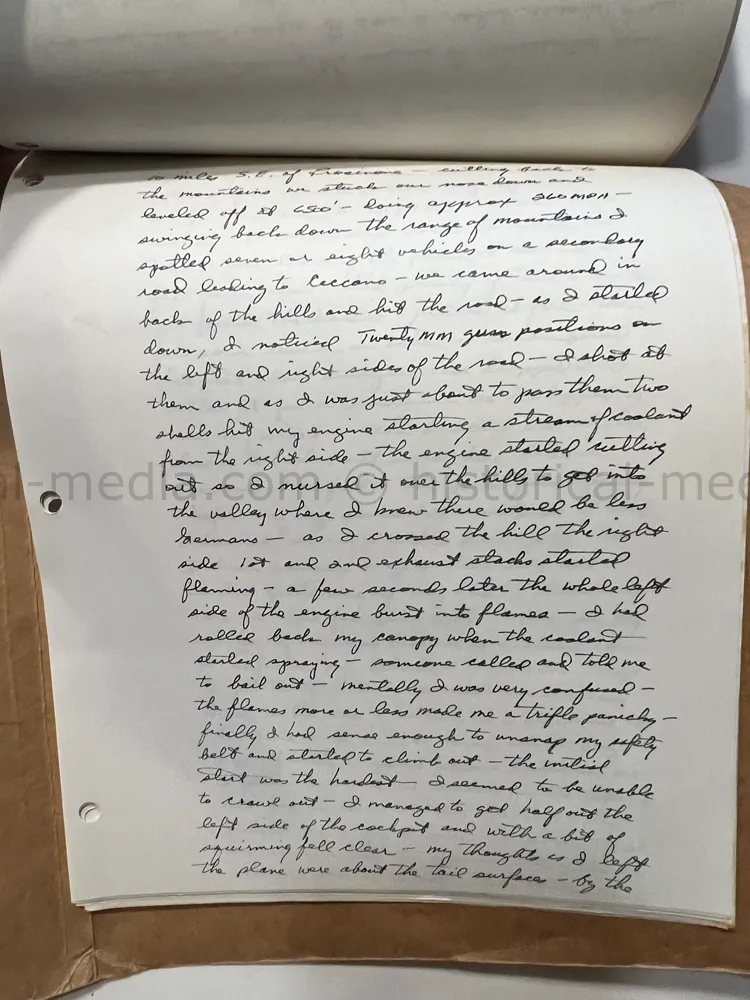 10 miles S.E. of Frosinone – cutting back to
the mountains we stuck our nose down and
leveled off at 650' – doing approx 260 MPH –
swinging back down the range of mountains I
spotted seven or eight vehicles on a secondary
road leading to Ceccano – we came around in
back of the hills and hit the road – as I started
down, I noticed Twenty MM guns positions on
the left and right sides of the road – I shot at
them and as I was just about to pass them two
shells hit my engine starting a stream of coolant
from the right side – the engine started cutting
out so I nursed it over the hills to get into
the valley where I knew there would be less
Germans – as I crossed the hill the right
side 1st and 2nd exhaust stacks started
flaming – a few seconds later the whole left
side of the engine burst into flames – I had
rolled back my canopy when the coolant
started spraying – someone called and told me
to bail out – mentally I was very confused –
the flames more or less made me a trifle panicky –
finally I had sense enough to unsnap my safety
belt and started to climb out – the initial
start was the hardest I seemed to be unable
to crawl out – I managed to get half out the
left side of the cockpit and with a bit of
squirming fell clear – my thoughts as I left
the plane were about the tail surfaces – by the
al-media.com © historical-med